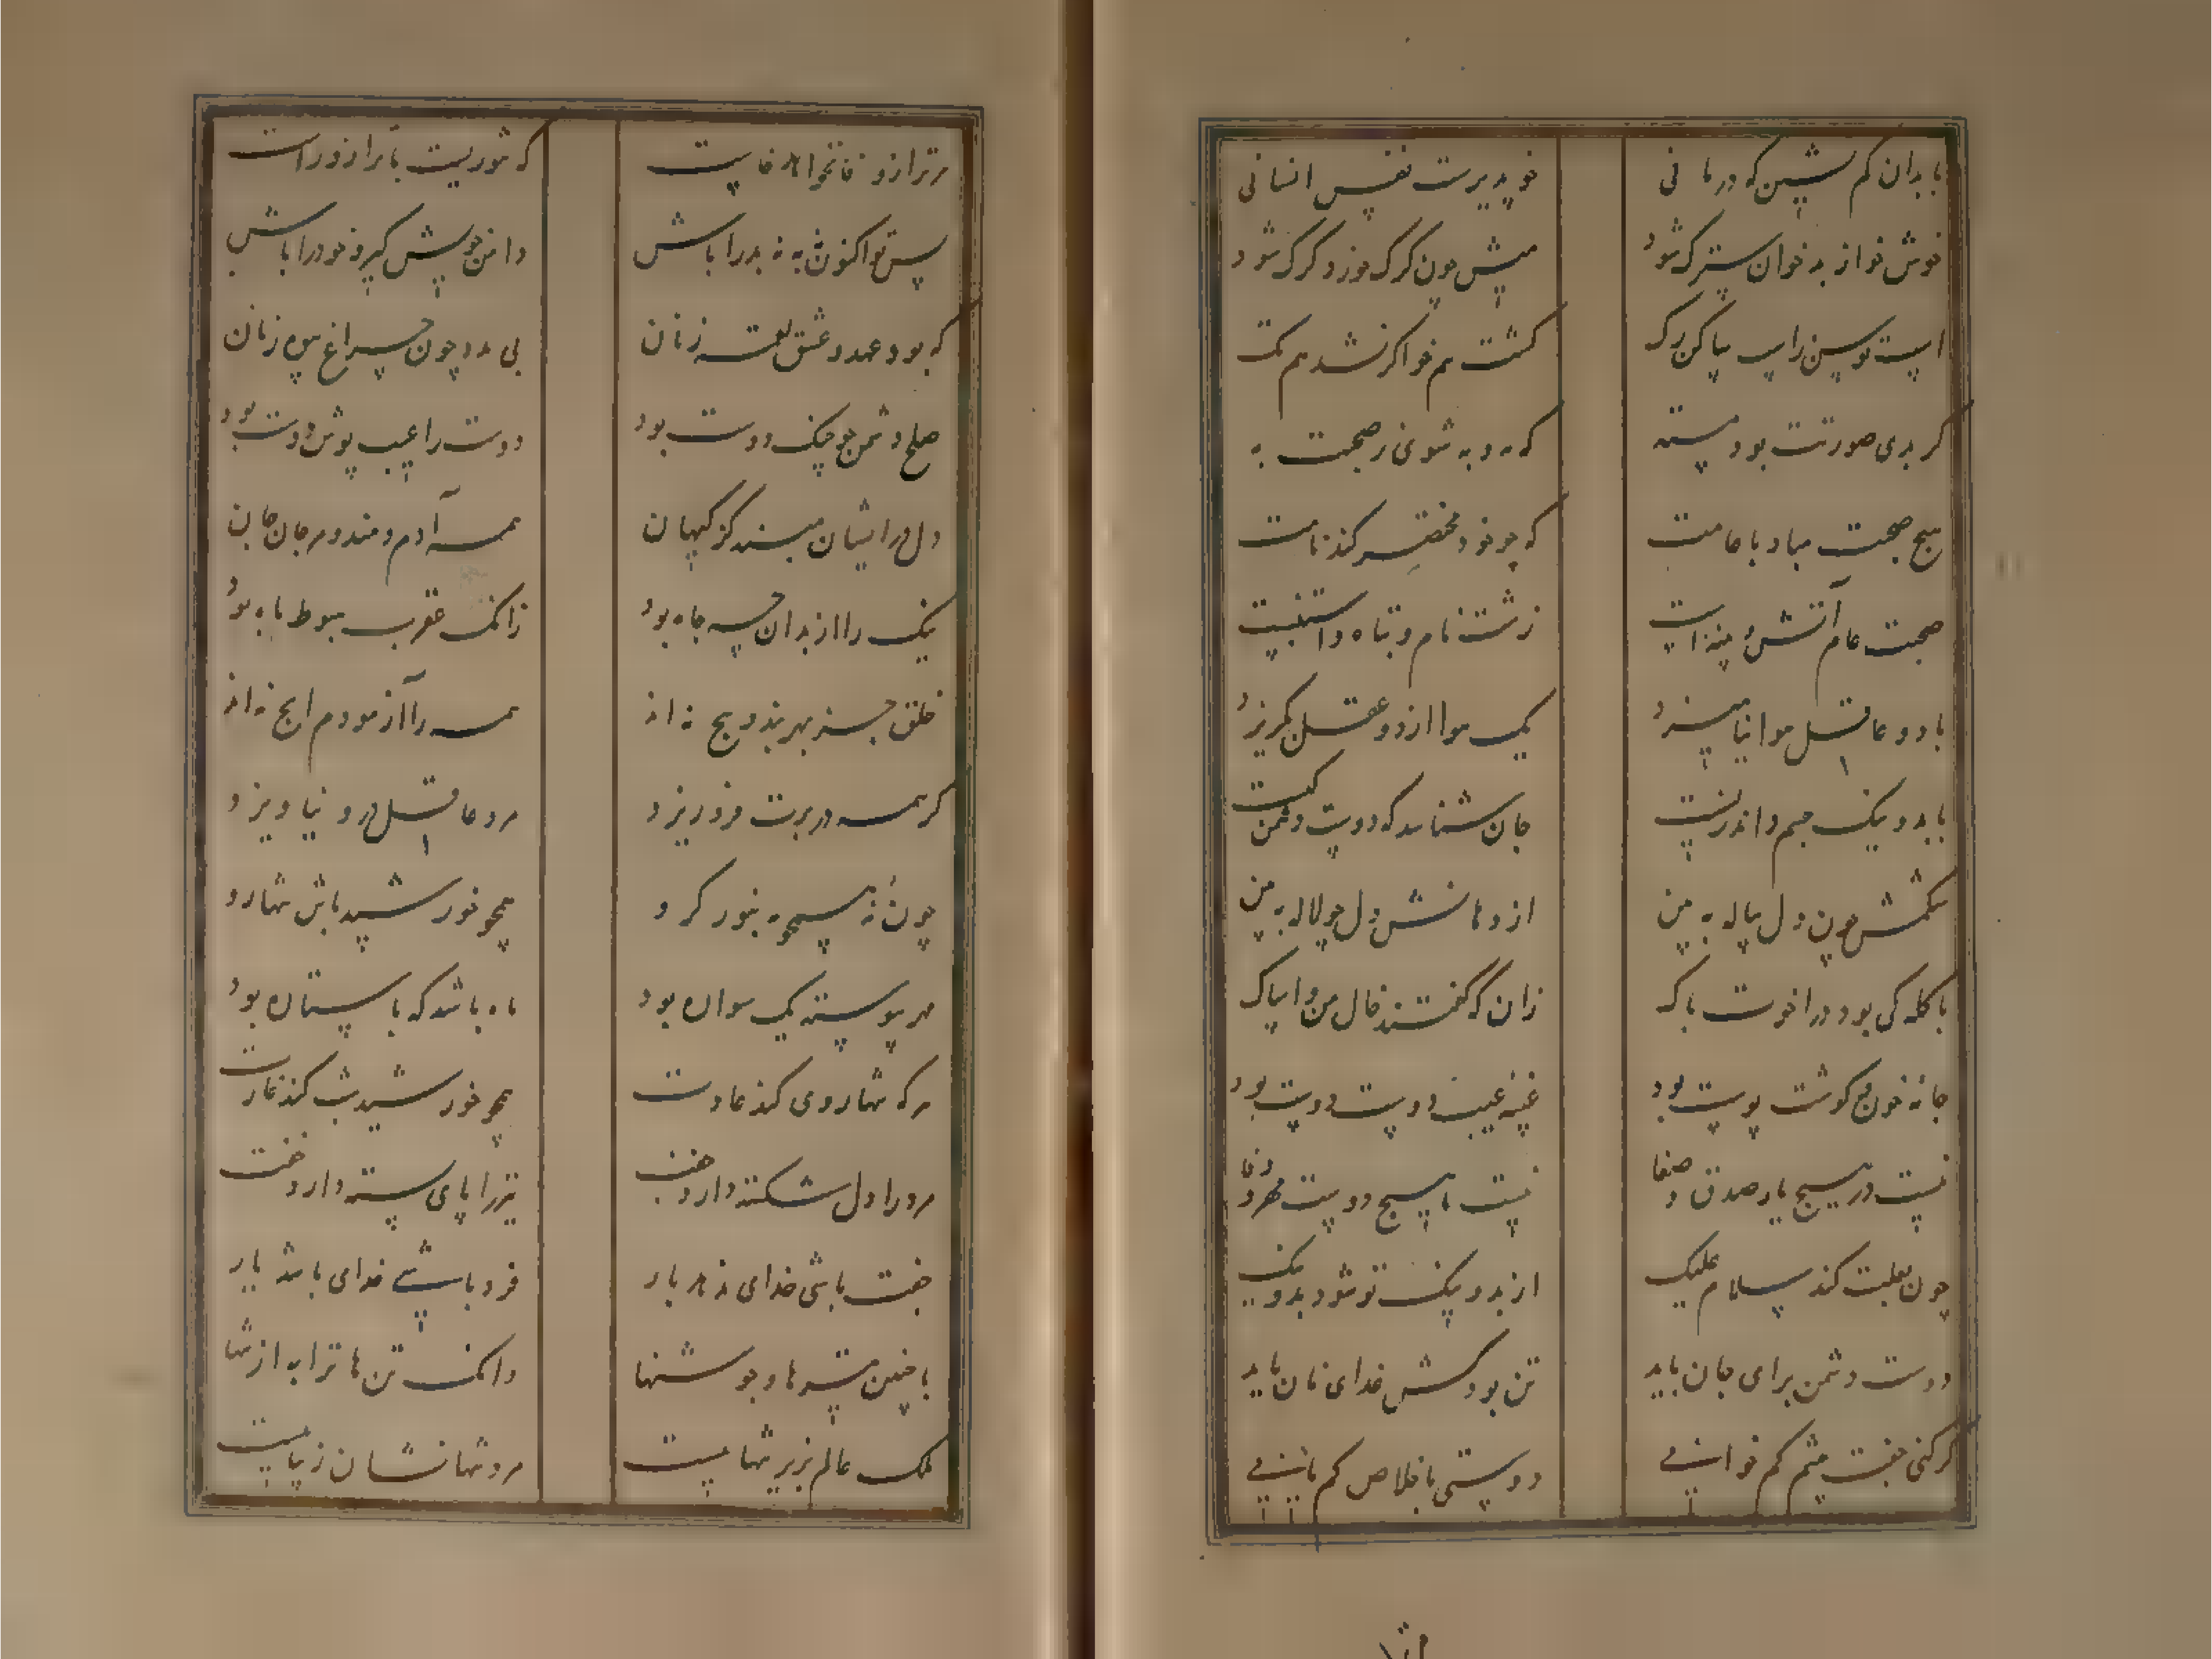 با بدان کم نشین که درمانی
خو پذیرست نفس انسانی
خوش خو از بدخوان سترک شود
میش چون گرگ خورد گرگ شود
اسب توسن ز اسب ساکن رگ
گشت هم خو اگر نشد هم تگ
گر بدی صورتت بود بسته
که مه و به شوی ز صحبت به
هیچ صحبت مباد با عامت
که چو خود مختصر کند نامت
صحبت عام آتش و پنبه است
زشت نام و تباه و استنبه است
با دو عاقل هوا نیامیزد
یک هوا از دو عقل بگریزد
با بد و نیک جسم و اندر نیست
جان شناسد که دوست دشمن کیست
از دمانش دل چو لاله ببین
با کله کی بود در اخوت باک
زان که گفتند خال من و ایاک
جانه خون گوشت پوست بود
عیبه عیب دوست دوست بود
نیست در هیچ یار صدق و صفا
نیست با هیچ دوست مهر و وفا
چون بعلت کند سلام علیک
از بد و نیک تو شود بد و نیک
دوست دشمن برای جان باید
تن بود کش غذای نان باید
گر کنی جفت چشم کم خوابیی
دوستی با خلاص کم یابیی
مر ترا زو فا نخواهد خاست
که نه توریست با ترازو راست
پس تو اکنون نه نه بد را باش
دامن خویش گیر و خود را باش
که بود عهد و عشق لقمه زنان
بی مدد چون چراغ بیوه زنان
صلح دشمن چو جنگ دوست بود
دوست را عیب پوش دوست بود
دل در ایشان مبند کز کیهان
همه آدم دمند و مرجان جان
نیک را از بدان چه جاه بود
زانک عقرب هبوط ماه بود
خلق جز بهر بند و بیچ نه اند
همه را آزمودم ایچ نه اند
گر همه در برت فرو ریزد
مرد عاقل درو نیاویزد
همچو خورشید باش تنها رو
مهر پیوسته یک سواره بود
ماه باشد که با ستاره بود
هر که تنها روی کند عادت
همچو خورشید شب کند غارت
مرد را دل شکسته دارد جفت
تیز را پای بسته دارد خفت
جفت باشی خدای ندهد بار
فرد باشی خدای باشد یار
با چنین متهما و جو شنها
دانک تن ها ترا به از تنها
ملک عالم بزیر تنهاییست
مرد تنها نشان زیباییست